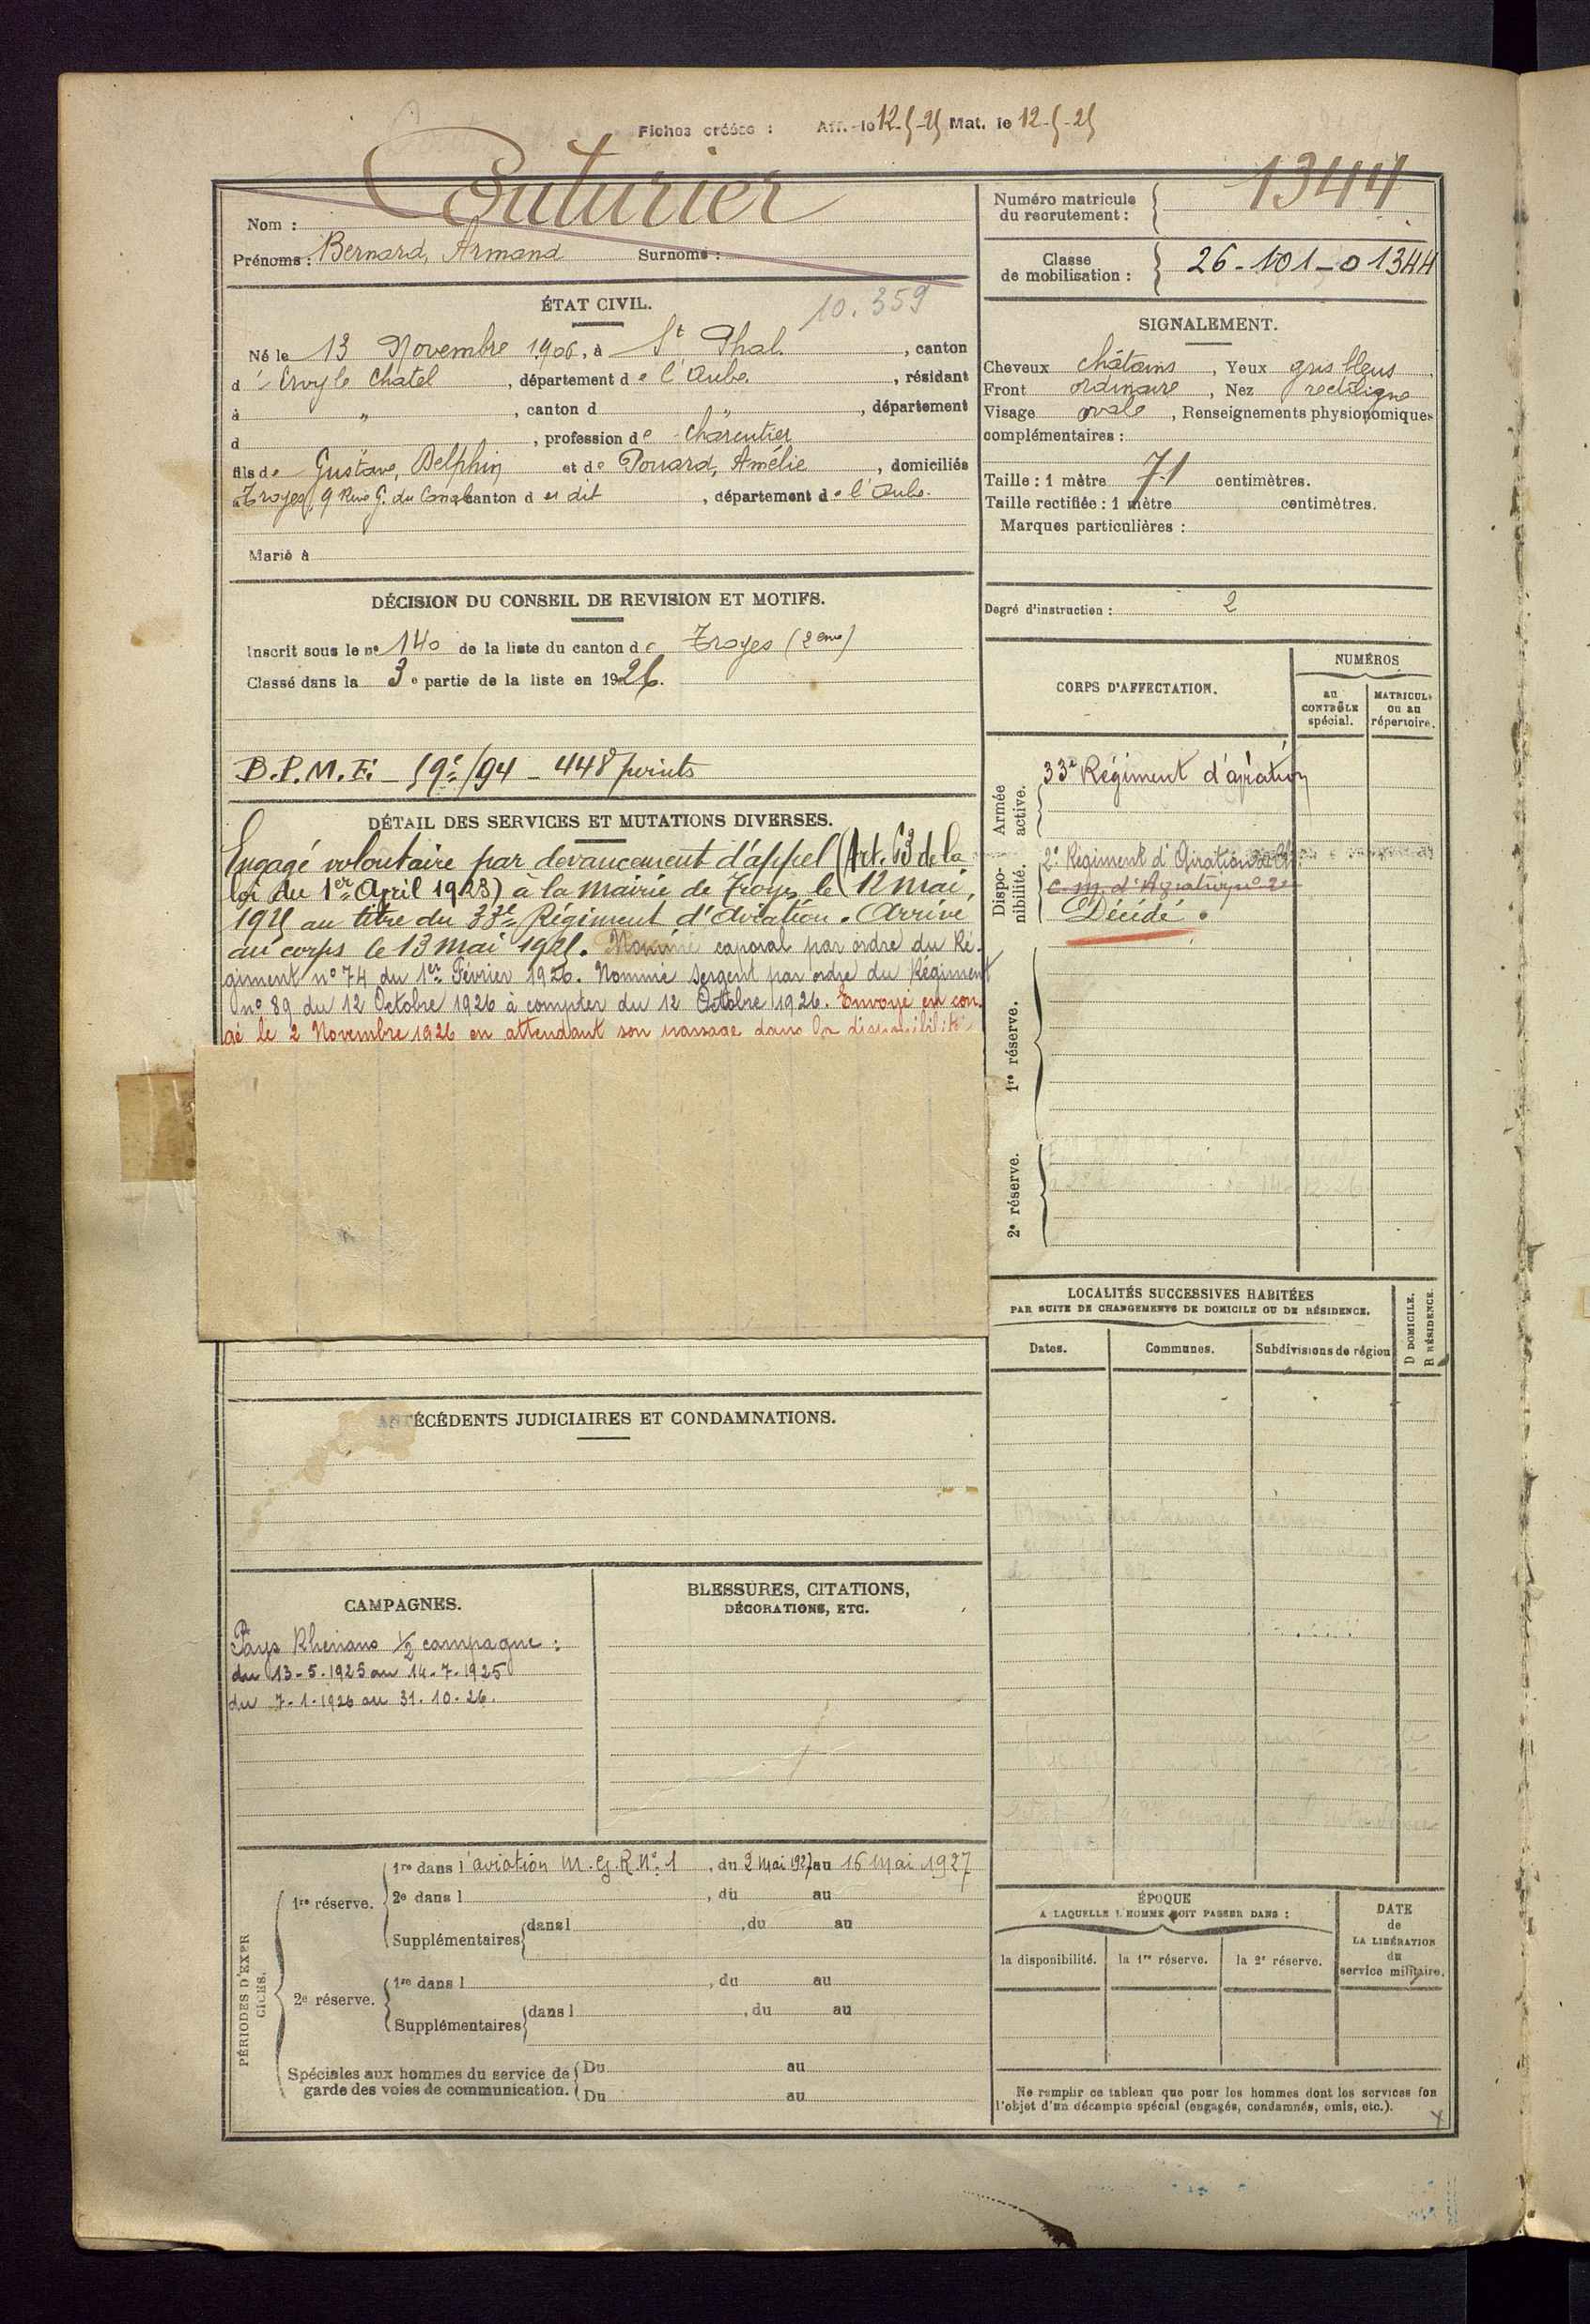 Fiches créées : Aff. le 12-5-25 Mat. le 12-5-25
Nom : Couturier
Prénoms : Bernard, Armand Surnoms :
Numéro matricule du recrutement : 1344
Classe de mobilisation : 26-101-01344
ÉTAT CIVIL.
10.359
Né le 13 Novembre 1906, à St Phal, canton
d'Ervy le Chatel, département de l'Aube, résidant
à " , canton d " , département
d , profession de charentier
fils de Gustave, Delphin et de Pouard, Amélie, domiciliés
à Troyes, 9 Rue G. du Canal canton d u dit, département de l'Aube.
Marié à
SIGNALEMENT.
Cheveux châtains, Yeux gris bleus
Front ordinaire, Nez rectiligne
Visage ovale, Renseignements physionomiques
complémentaires :
Taille : 1 mètre 71 centimètres.
Taille rectifiée : 1 mètre centimètres.
Marques particulières :
Degré d'instruction : 2
DÉCISION DU CONSEIL DE REVISION ET MOTIFS.
Inscrit sous le no 140 de la liste du canton de Troyes (2eme)
Classé dans la 3e partie de la liste en 1926.
B.P.M.E. - 59e/94 - 448 points
DÉTAIL DES SERVICES ET MUTATIONS DIVERSES.
Engagé volontaire par devancement d'appel (Art. 63 de la
loi du 1er April 1923) à la mairie de Troyes, le 12 mai,
1925 au titre du 33e Régiment d'Aviation. Arrivé
au corps le 13 mai 1925. Nommé caporal par ordre du Ré-
giment no 74 du 1er Février 1926. Nommé Sergent par ordre du Régiment
no 89 du 12 Octobre 1926 à compter du 12 Octobre 1926. Envoyé en con-
gé le 2 Novembre 1926 en attendant son passage dans la disponibilité
CORPS D'AFFECTATION.
NUMÉROS
au CONTRÔLE spécial.
MATRICULE ou au répertoire.
Armée active.
33e Régiment d'aviation
Disponibilité.
2e Régiment d'Aviation
C.M. d'Aviation no 2
Décédé.
1re réserve.
2e réserve.
LOCALITÉS SUCCESSIVES HABITÉES
PAR SUITE DE CHANGEMENTS DE DOMICILE OU DE RÉSIDENCE.
Dates. Communes. Subdivisions de région
D DOMICILE. R RÉSIDENCE.
ANTÉCÉDENTS JUDICIAIRES ET CONDAMNATIONS.
CAMPAGNES.
Pays Rhénans 1/2 campagne :
du 13-5-1925 au 14-7-1925
du 7-1-1926 au 31-10-26.
BLESSURES, CITATIONS,
DÉCORATIONS, ETC.
PÉRIODES D'EXERCICES.
1re réserve.
1re dans l'aviation M.G.R. No 1, du 2 Mai 1927 au 16 Mai 1927
2e dans l , du au
Supplémentaires dans l , du au
2e réserve.
1re dans l , du au
Supplémentaires dans l , du au
Spéciales aux hommes du service de
garde des voies de communication.
Du au
Du au
ÉPOQUE
A LAQUELLE L'HOMME DOIT PASSER DANS :
la disponibilité. la 1re réserve. la 2e réserve.
DATE
de
LA LIBÉRATION
du
service militaire.
Ne remplir ce tableau que pour les hommes dont les services font
l'objet d'un décompte spécial (engagés, condamnés, omis, etc.).